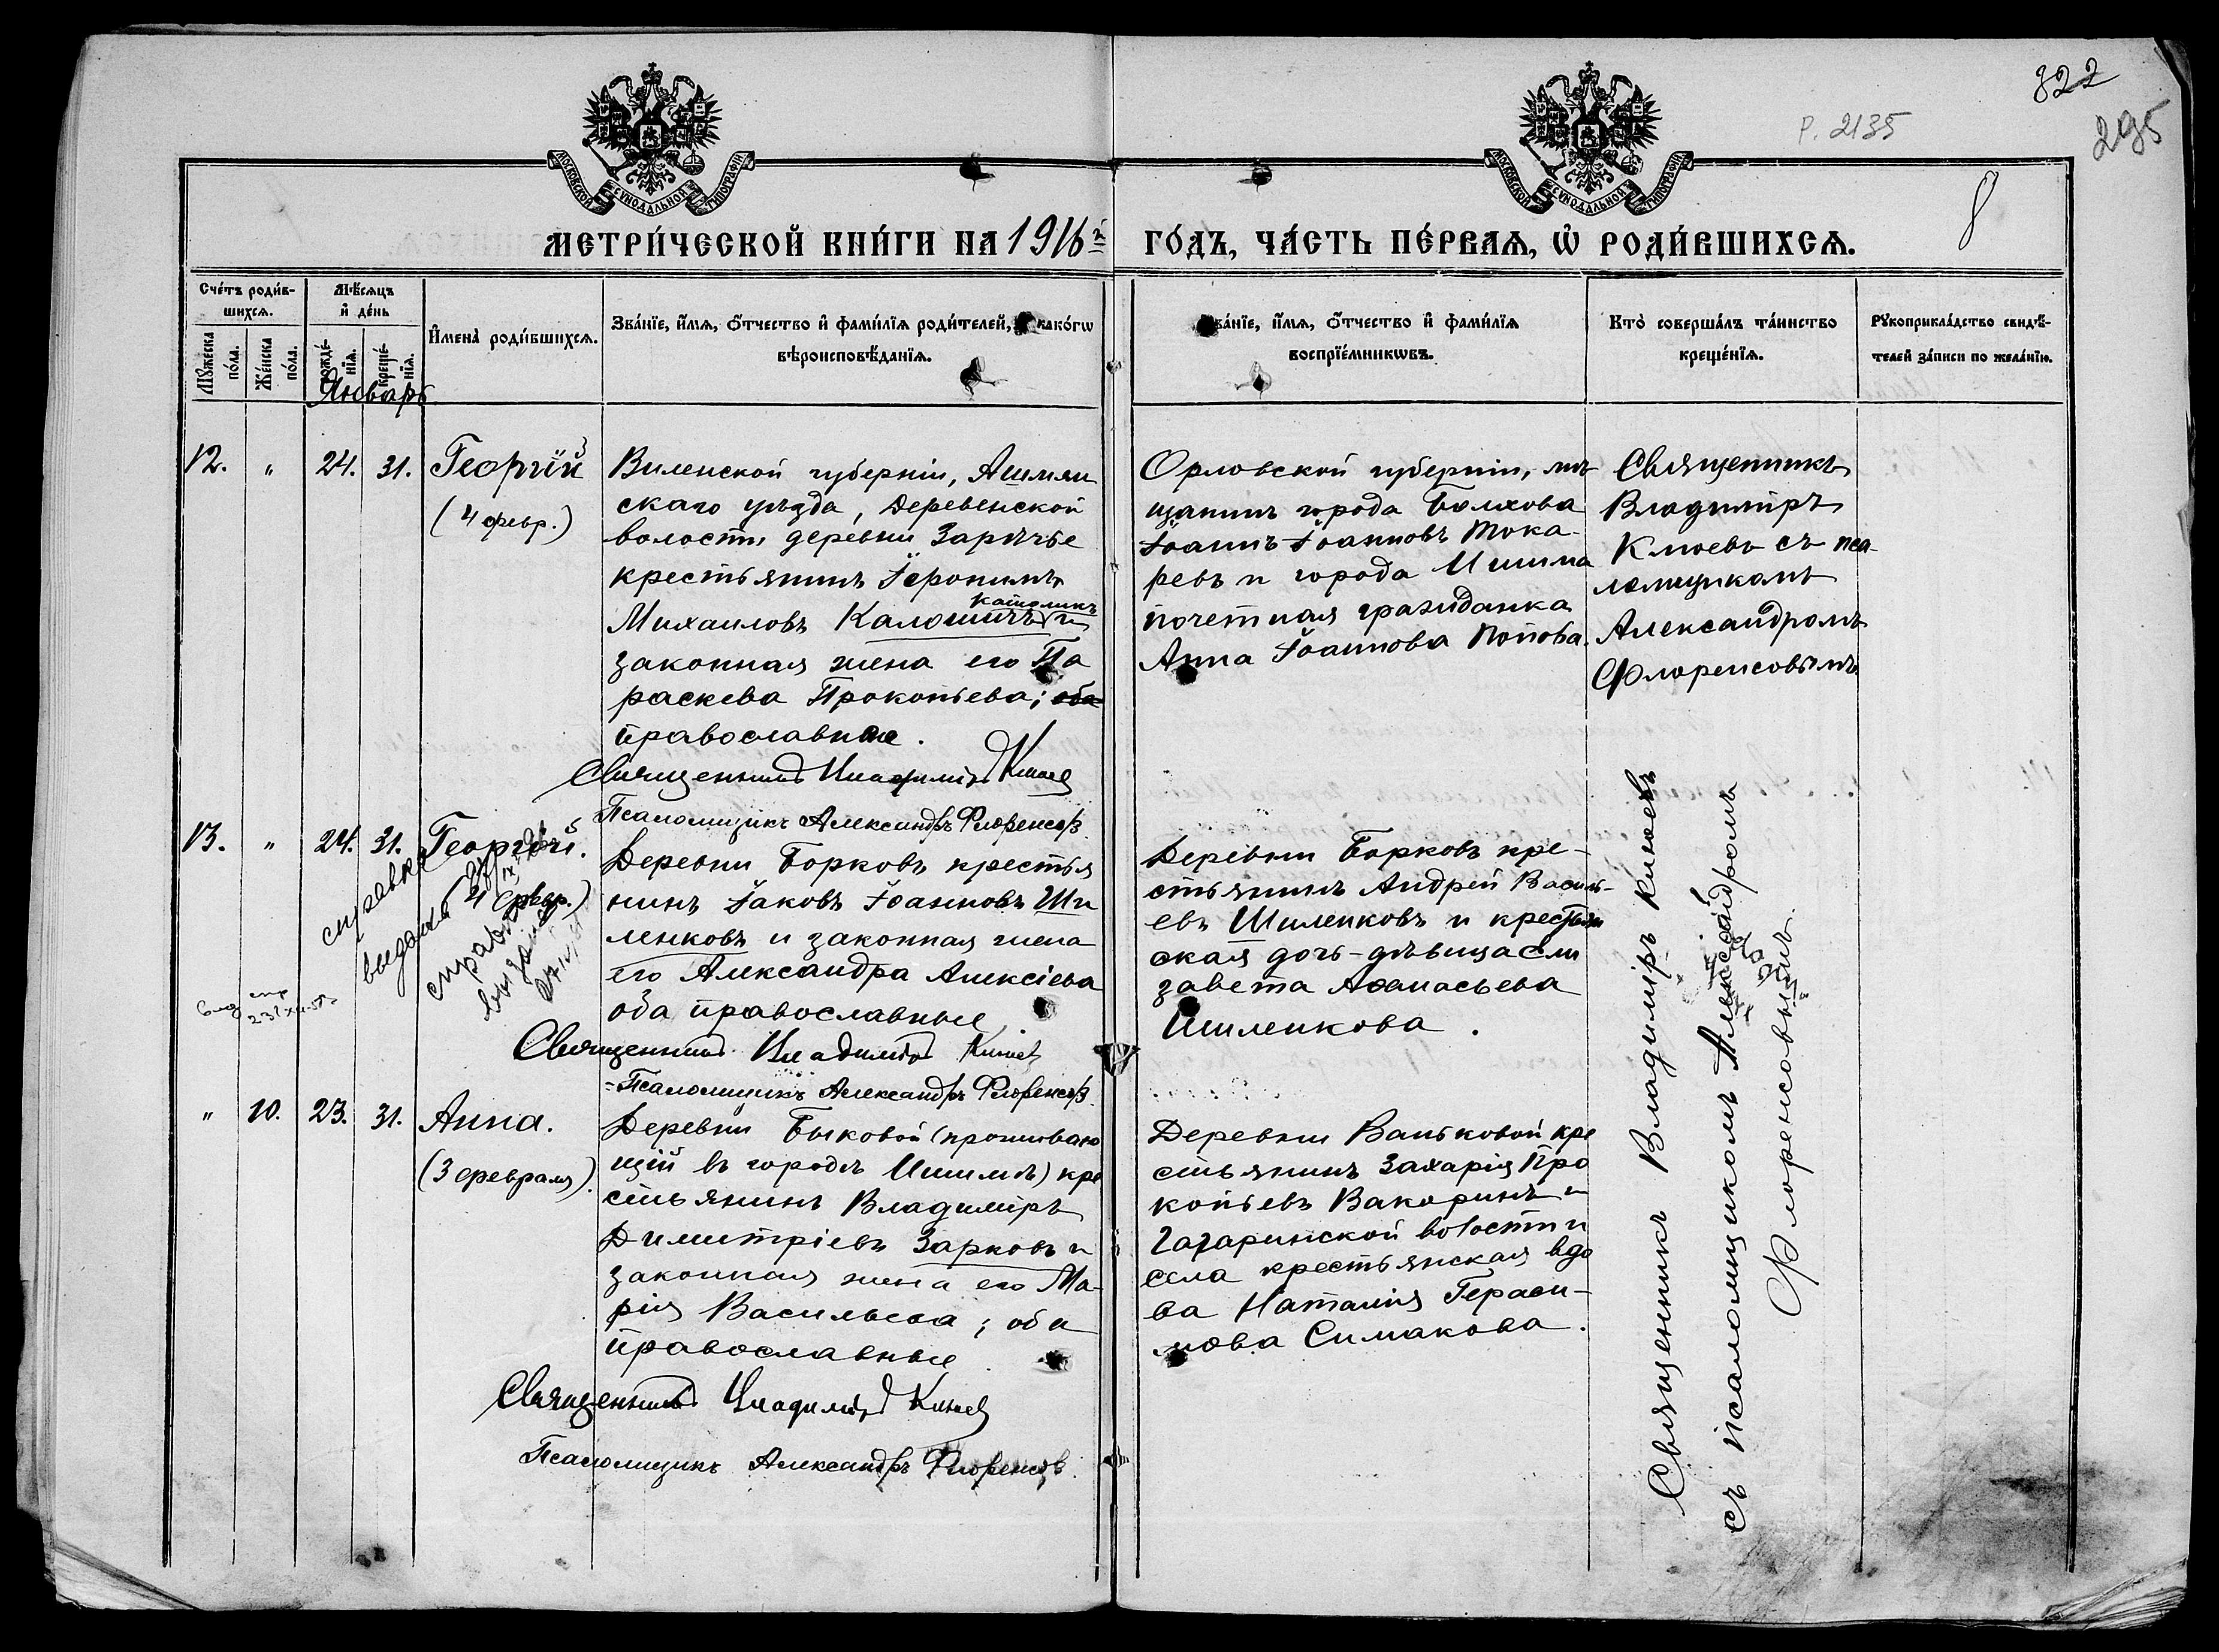 322
295
Р. 2135
8
МОСКОВСКОЙ СѴНОДАЛЬНОЙ ТИПОГРАФІИ
МОСКОВСКОЙ СѴНОДАЛЬНОЙ ТИПОГРАФІИ
МЕТРИ́ЧЕСКОЙ КНИ́ГИ НА 1916й ГО́ДЪ, ЧА́СТЬ ПЕ́РВАѦ, Ѡ҆ РОДИ́ВШИХСѦ.
Сче́тъ роди́в-
шихсѧ.
Мꙋжеска по́ла.
Же́нска по́ла.
Мѣ́сѧцъ
и҆ де́нь
рожде́-нїѧ.
креще́-нїѧ.
Январь
И҆мена̀ роди́вшихсѧ.
Зва́нїе, и҆́мѧ, ѻ҆́тчество и҆ фами́лїѧ роди́телей, како́гѡ
вѣроисповѣ́данїѧ.
Зва́нїе, и҆́мѧ, ѻ҆́тчество и҆ фами́лїѧ
воспрїе́мникѡвъ.
Кто̀ соверша́лъ та́инство
креще́нїѧ.
Рꙋкоприкла́дство свидѣ́-
телей за́писи по жела́нїю.
12. " 24. 31. Георгій
(4 февр.)
Виленской губерніи, Ашмян
скаго уѣзда, Деревенской
волости деревни Зарѣчье
крестьянинъ Іеронимъ
католикъ
Михаиловъ Калошичъ и
законная жена его Па
раскева Прокопьева; оба
православная.
Священникъ Владиміръ Клюев
Псаломщикъ Александръ Флоренсов
Орловской губерніи, мѣ
щанинъ города Болхова
Іоаннъ Іоанновъ Тока-
ревъ и города Ишима
почетная гражданка
Анна Іоаннова Попова.
Священникъ
Владиміръ
Клюевъ съ пса-
ломщикомъ
Александромъ
Флоренсовымъ
13. " 24. 31. Георгій.
(4 февр.)
справка
выдана
справка
выдана
Деревни Борковъ крестья
нинъ Іаковъ Іоанновъ Ши
ленковъ и законная жена
его Александра Алексіева
оба православные
Священникъ Владиміръ Клюев
Псаломщикъ Александръ Флоренсов
Деревни Борковъ кре-
стьянинъ Андрей Василь-
евъ Шиленковъ и крестьян
ская дочь-дѣвица Ели
завета Аѳанасьева
Шиленкова.
" 10. 23. 31. Анна.
(3 февраля).
Деревни Быковой (проживаю
щій въ городѣ Ишимѣ) кре
стьянинъ Владиміръ
Димитріевъ Зарковъ и
законная жена его Ма-
рія Васильева; оба
православные
Священникъ Владиміръ Клюев
Псаломщикъ Александръ Флоренсов.
Деревни Ваньковой кре
стьянинъ Захарія Про
копьевъ Вакоринъ и
Гагаринской волости и
села крестьянская вдо
ва Наталія Гераси-
мова Симакова.
Священникъ Владиміръ Клюевъ
съ псаломщикомъ Александромъ
Флоренсовымъ.